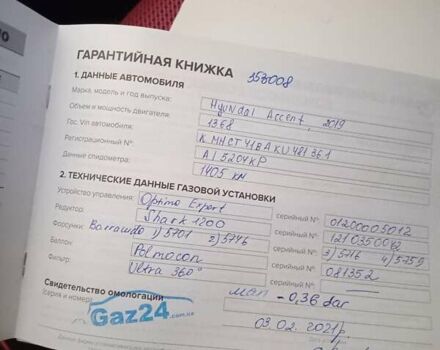 ГАРАНТИЙНАЯ КНИЖКА 353008
1. ДАННЫЕ АВТОМОБИЛЯ
Марка, модель и год выпуска: Hyundai Accent, 2019
Объем и мощность двигателя: 1368
Гос. Vin автомобиля: KMHCT41BAKU481361
Регистрационный №: AI5204KP
Данные спидометра: 1405 км
2. ТЕХНИЧЕСКИЕ ДАННЫЕ ГАЗОВОЙ УСТАНОВКИ
Устройство управления: Optima Expert серийный №: 01200005012
Редуктор: Shark 1200 серийный №: 1210350012
Форсунки: Barracuda 1) 5701 2) 5746 серийный №: 3) 5716 4) 5759
Баллон: Polmocon серийный №: 081352
Фильтр: Ultra 360° серийный №:
Свидетельство омологации мап - 0,36 bar
(серия и номер)
Gaz24.com.ua
03.02.2021р